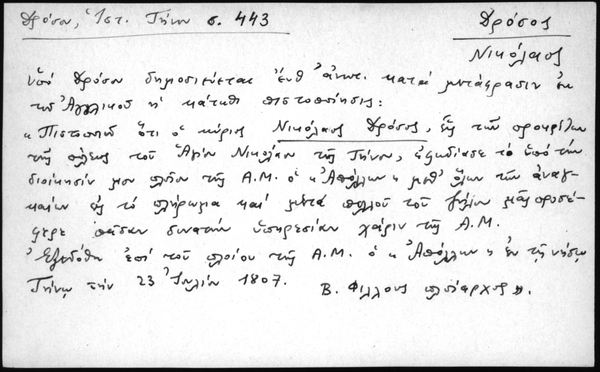 Δρόσου, Ἱστ. Τήνου σ. 443
Δρόσος
Νικόλαος
ὑπό Δρόσου δημοσιεύεται ἔνθ' ἀνωτ. κατά μετάφρασιν ἐκ
τοῦ Ἀγγλικοῦ ἡ κάτωθι πιστοποίησις:
«Πιστοποιῶ ὅτι ὁ κύριος Νικόλαος Δρόσος, εἷς τῶν προκρίτων
τῆς πόλεως τοῦ Ἁγίου Νικολάου τῆς Τήνου, ἐφωδίασε τό ὑπό τήν
διοίκησίν μου πλοῖον τῆς Α.Μ. ὁ «Ἀπόλλων» μεθ' ὅλων τῶν ἀναγ-
καίων εἰς τό πλήρωμα καί μετά πολλοῦ τοῦ ζήλου μᾶς προσέ-
φερε πᾶσαν δυνατήν ὑπηρεσίαν χάριν τῆς Α.Μ.
Ἐξεδόθη ἐπί τοῦ πλοίου τῆς Α.Μ. ὁ «Ἀπόλλων» ἐν τῇ νήσῳ
Τήνῳ τήν 23 Ἰουλίου 1807.
Β. Φέλλους πλοίαρχος».